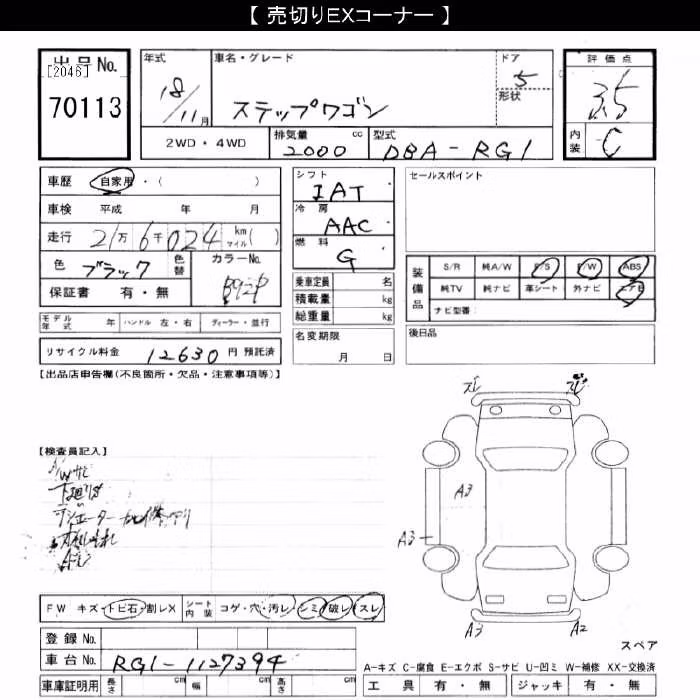 【 売切りEXコーナー 】
出品No.
[2046]
70113
年式
18/11月
車名・グレード
ステップワゴン
ドア
5
形状
評価点
3.5
内装
C
2WD・4WD
排気量 cc
2000
型式
DBA-RG1
車歴 自家用・( )
車検 平成 年 月
走行 21万6千024 km マイル( )
色 ブラック 色替
カラーNo.
B92P
保証書 有・無
モデル年式 年 ハンドル 左・右 ディーラー・並行
リサイクル料金 12630 円 預託済
シフト
IAT
冷房
AAC
燃料
G
乗車定員 名
積載量 kg
総重量 kg
名変期限
月 日
セールスポイント
装備品
S/R 純A/W P/S P/W ABS
純TV 純ナビ 革シート 外ナビ エアB
ナビ型番:
後日品
【出品店申告欄(不良箇所・欠品・注意事項等)】
【検査員記入】
A/Wサビ
下廻りサビ
ラジエーター
FW キズ・トビ石・割レX シート内装 コゲ・穴・汚レ シミ 破レ スレ
登録No.
車台No. RG1-1127394
車庫証明用 長さ cm 幅 cm 高さ cm
スレ
A3
A3
A3
A2
スペア
A-キズ C-腐食 E-エクボ S-サビ U-凹ミ W-補修 XX-交換済
工具 有・無 ジャッキ 有・無